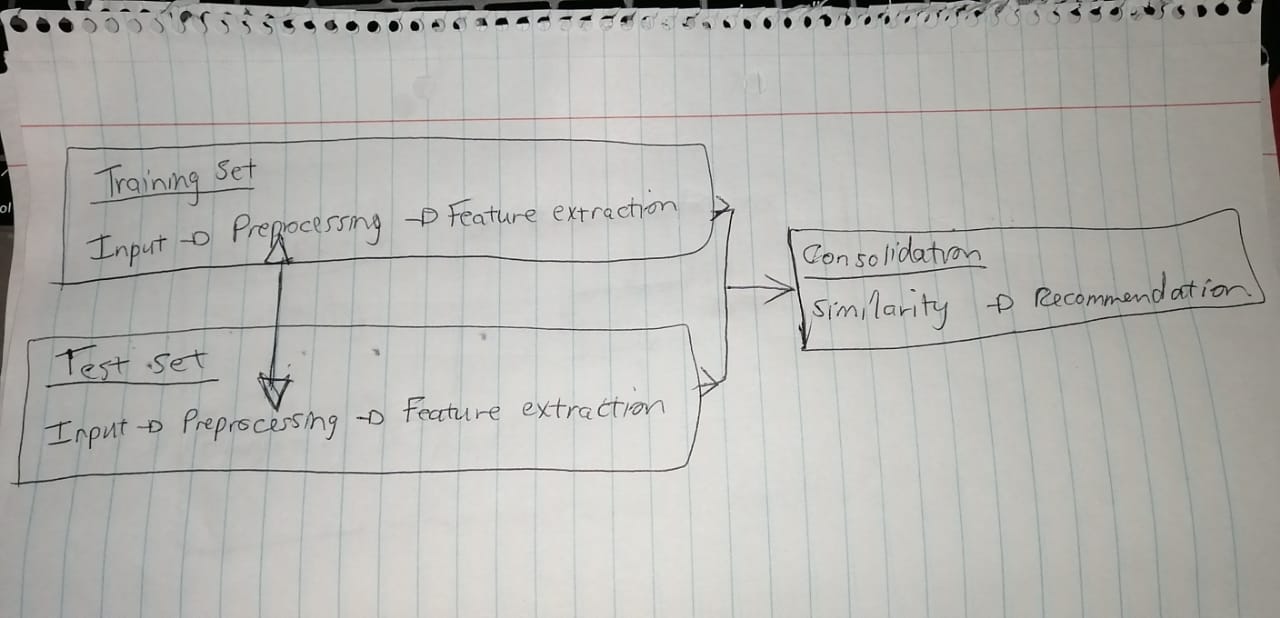 Training Set
Input → Preprocessing → Feature extraction
Test set
Input → Preprocessing → Feature extraction
Consolidation
Similarity → Recommendation
ol